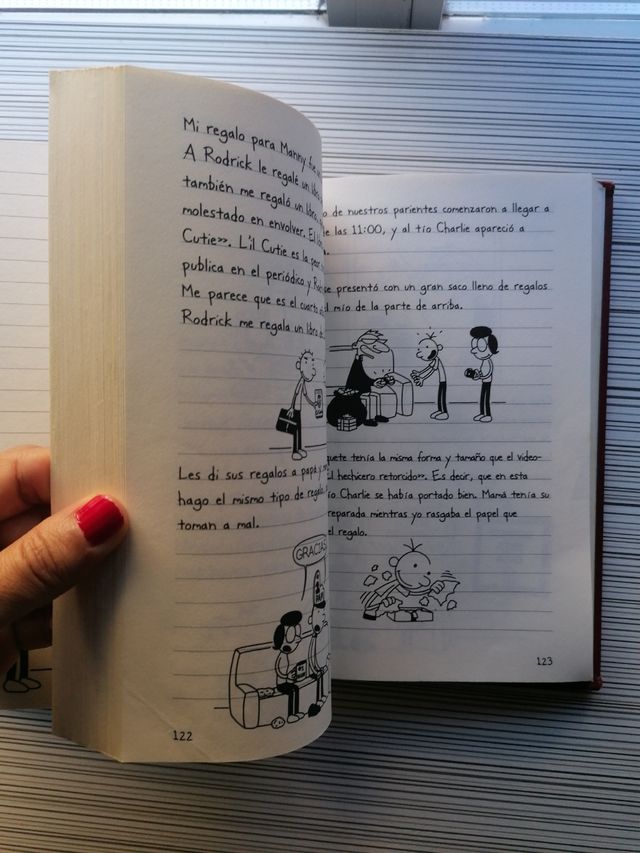 Mi regalo para Manny
A Rodrick le regalé un
también me regaló un libro,
molestado en envolver. El
Cutie». L'il Cutie es la peor
publica en el periódico y
Me parece que es el cuarto
Rodrick me regala un libro
Les di sus regalos a papá y
hago el mismo tipo de
toman a mal.
GRACIAS
122
de nuestros parientes comenzaron a llegar a
las 11:00, y al tío Charlie apareció a
se presentó con un gran saco lleno de regalos
mío de la parte de arriba.
tenía la misma forma y tamaño que el video-
hechicero retorcido». Es decir, que en esta
Charlie se había portado bien. Mamá tenía su
mientras yo rasgaba el papel que
el regalo.
123